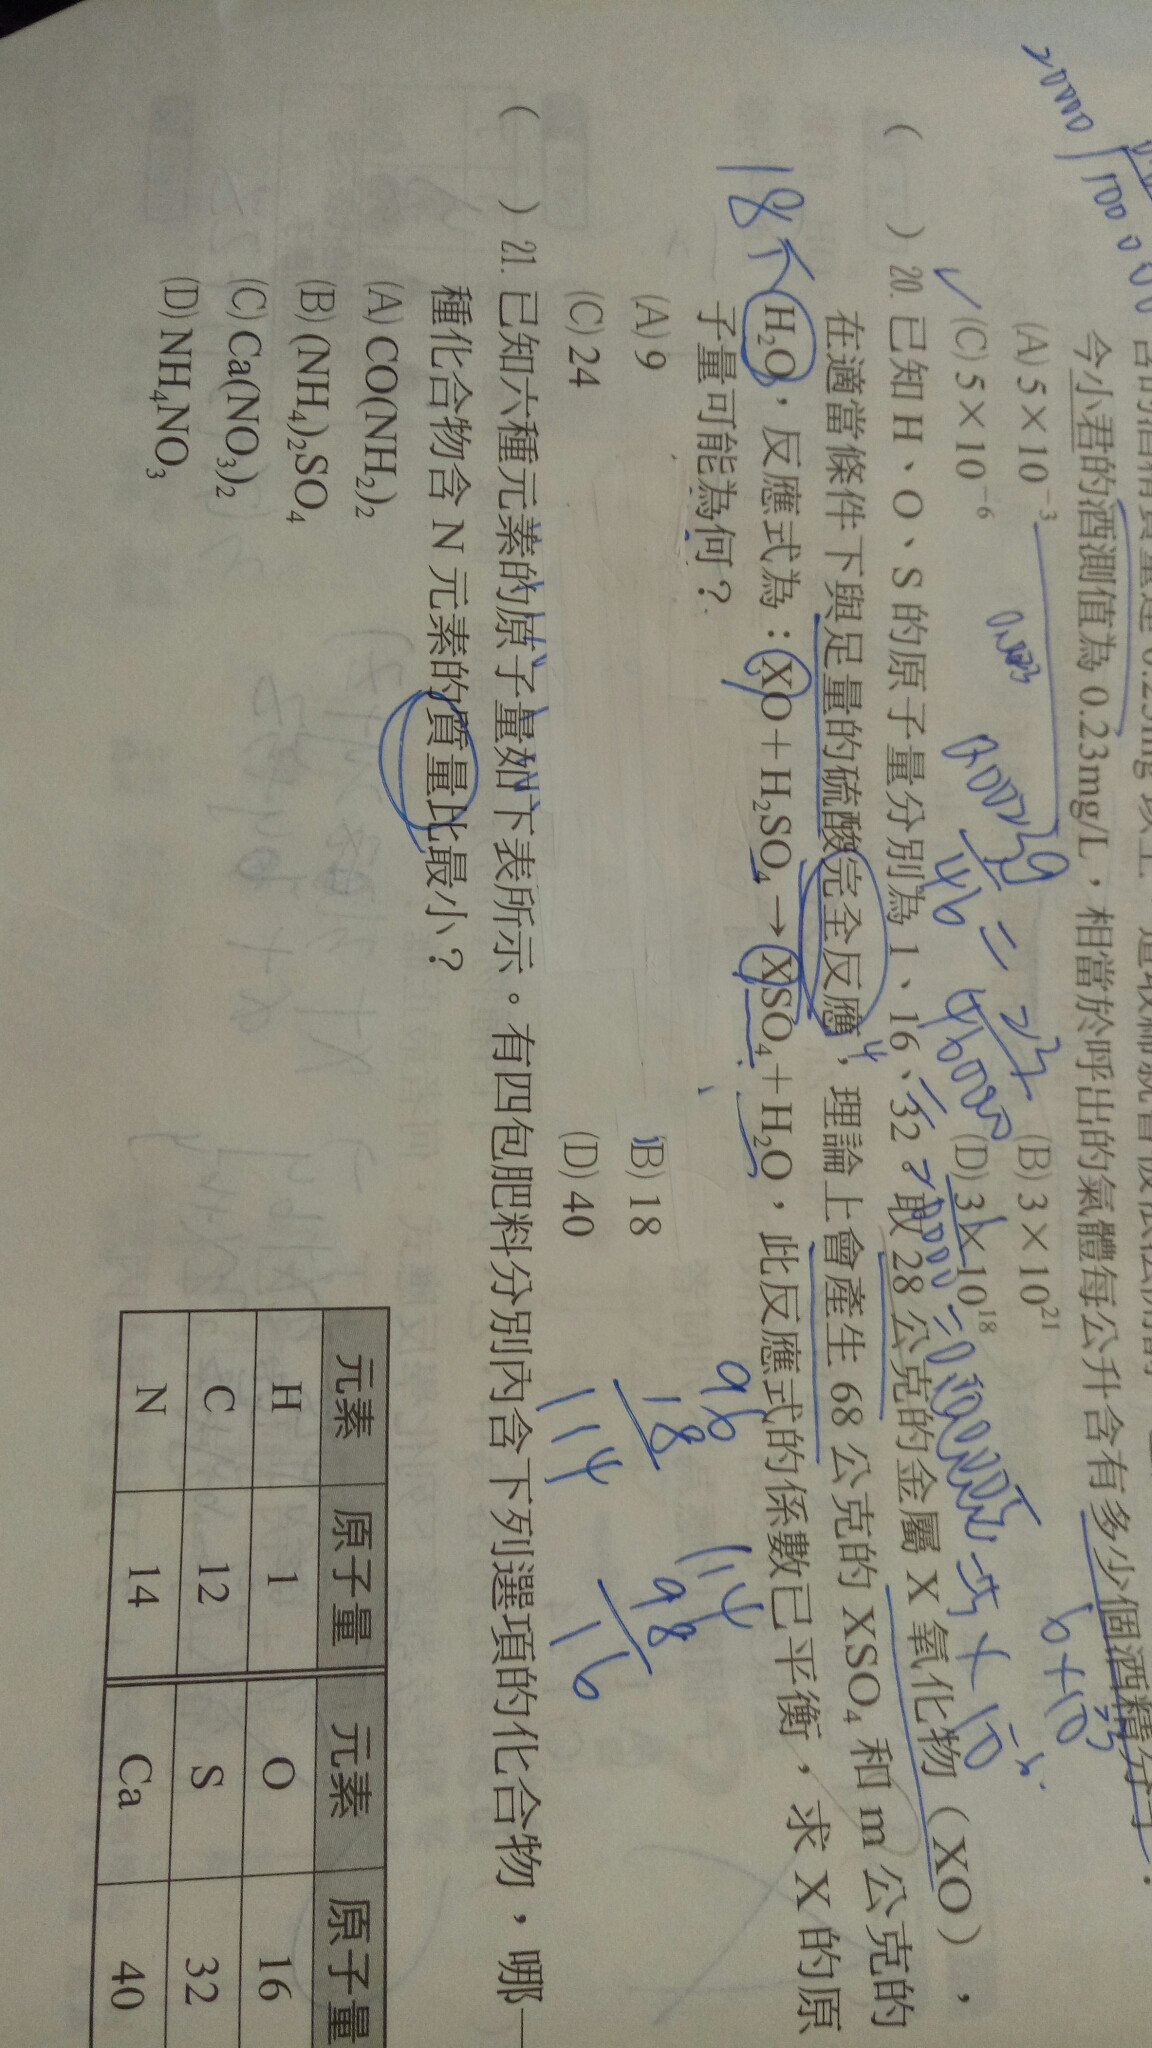 今小君的酒測值為 0.23mg/L，相當於呼出的氣體每公升含有多少個酒精分子．
(A) 5×10⁻³ (B) 3×10²¹
(C) 5×10⁻⁶ (D) 3×10¹⁸
( ) 20. 已知 H、O、S 的原子量分別為 1、16、32，取 28 公克的金屬 X 氧化物（XO），
在適當條件下與足量的硫酸完全反應，理論上會產生 68 公克的 XSO₄ 和 m 公克的
H₂O，反應式為：XO＋H₂SO₄→XSO₄＋H₂O，此反應式的係數已平衡，求 X 的原
子量可能為何？
(A) 9 (B) 18
(C) 24 (D) 40
18
96
18
114
114
98
16
( ) 21. 已知六種元素的原子量如下表所示。有四包肥料分別內含下列選項的化合物，哪一
種化合物含 N 元素的質量比最小？
(A) CO(NH₂)₂
(B) (NH₄)₂SO₄
(C) Ca(NO₃)₂
(D) NH₄NO₃
元素 原子量 元素 原子量
H 1 O 16
C 12 S 32
N 14 Ca 40